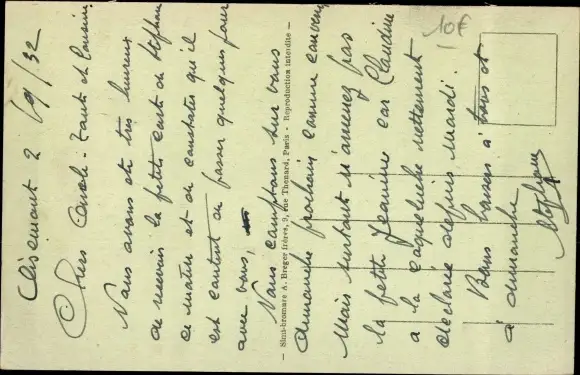 Clermont 2 /9/32
Chers Oncle - Tante et Cousin.
Nous avons été très heureux
de recevoir la petite carte de Stéphane
ce matin et de constater qu'il
est content de passer quelques jours
avec vous,
Nous comptons sur vous
dimanche prochain comme convenu
Mais surtout n'amenez pas
la petite Jeanine car Claudine
a la coqueluche nettement
déclarée depuis Mardi.
Bons baisers à tous et
à dimanche
Stéphane
— Simi-bromure A. Breger frères, 9, rue Thénard, Paris - Reproduction interdite —
10€